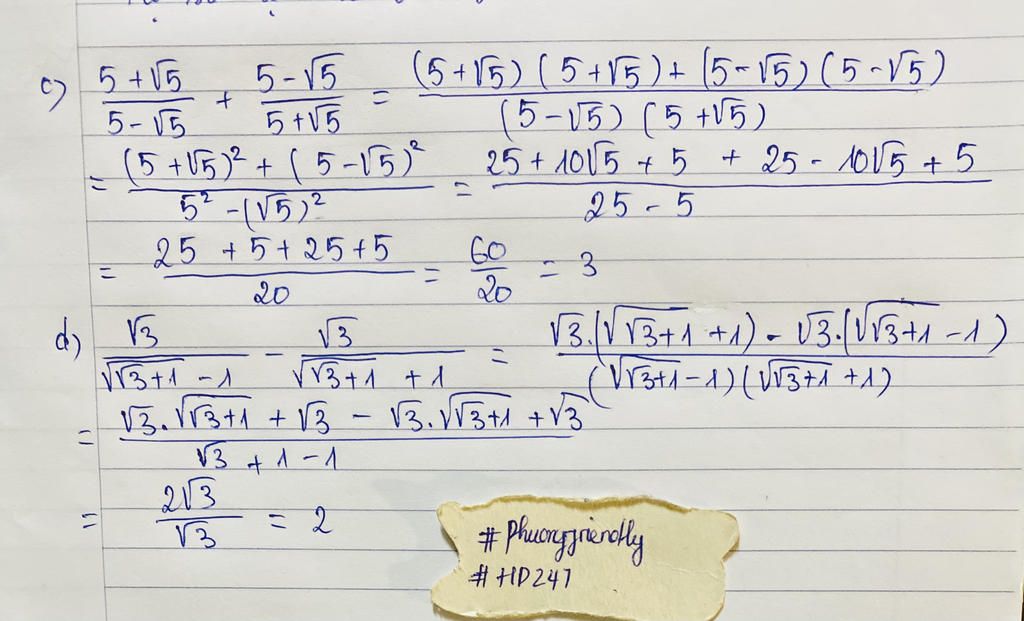 c) (5+√5)/(5-√5) + (5-√5)/(5+√5) = ((5+√5)(5+√5)+(5-√5)(5-√5))/((5-√5)(5+√5))
= ((5+√5)²+(5-√5)²)/(5²-(√5)²) = (25+10√5+5 + 25-10√5+5)/(25-5)
= (25+5+25+5)/20 = 60/20 = 3
d) √3/(√(√3+1)-1) - √3/(√(√3+1)+1) = (√3.(√(√3+1)+1)-√3.(√(√3+1)-1))/((√(√3+1)-1)(√(√3+1)+1))
= (√3.√(√3+1)+√3-√3.√(√3+1)+√3)/(√3+1-1)
= 2√3/√3 = 2
#phuongfriendly
#HD247